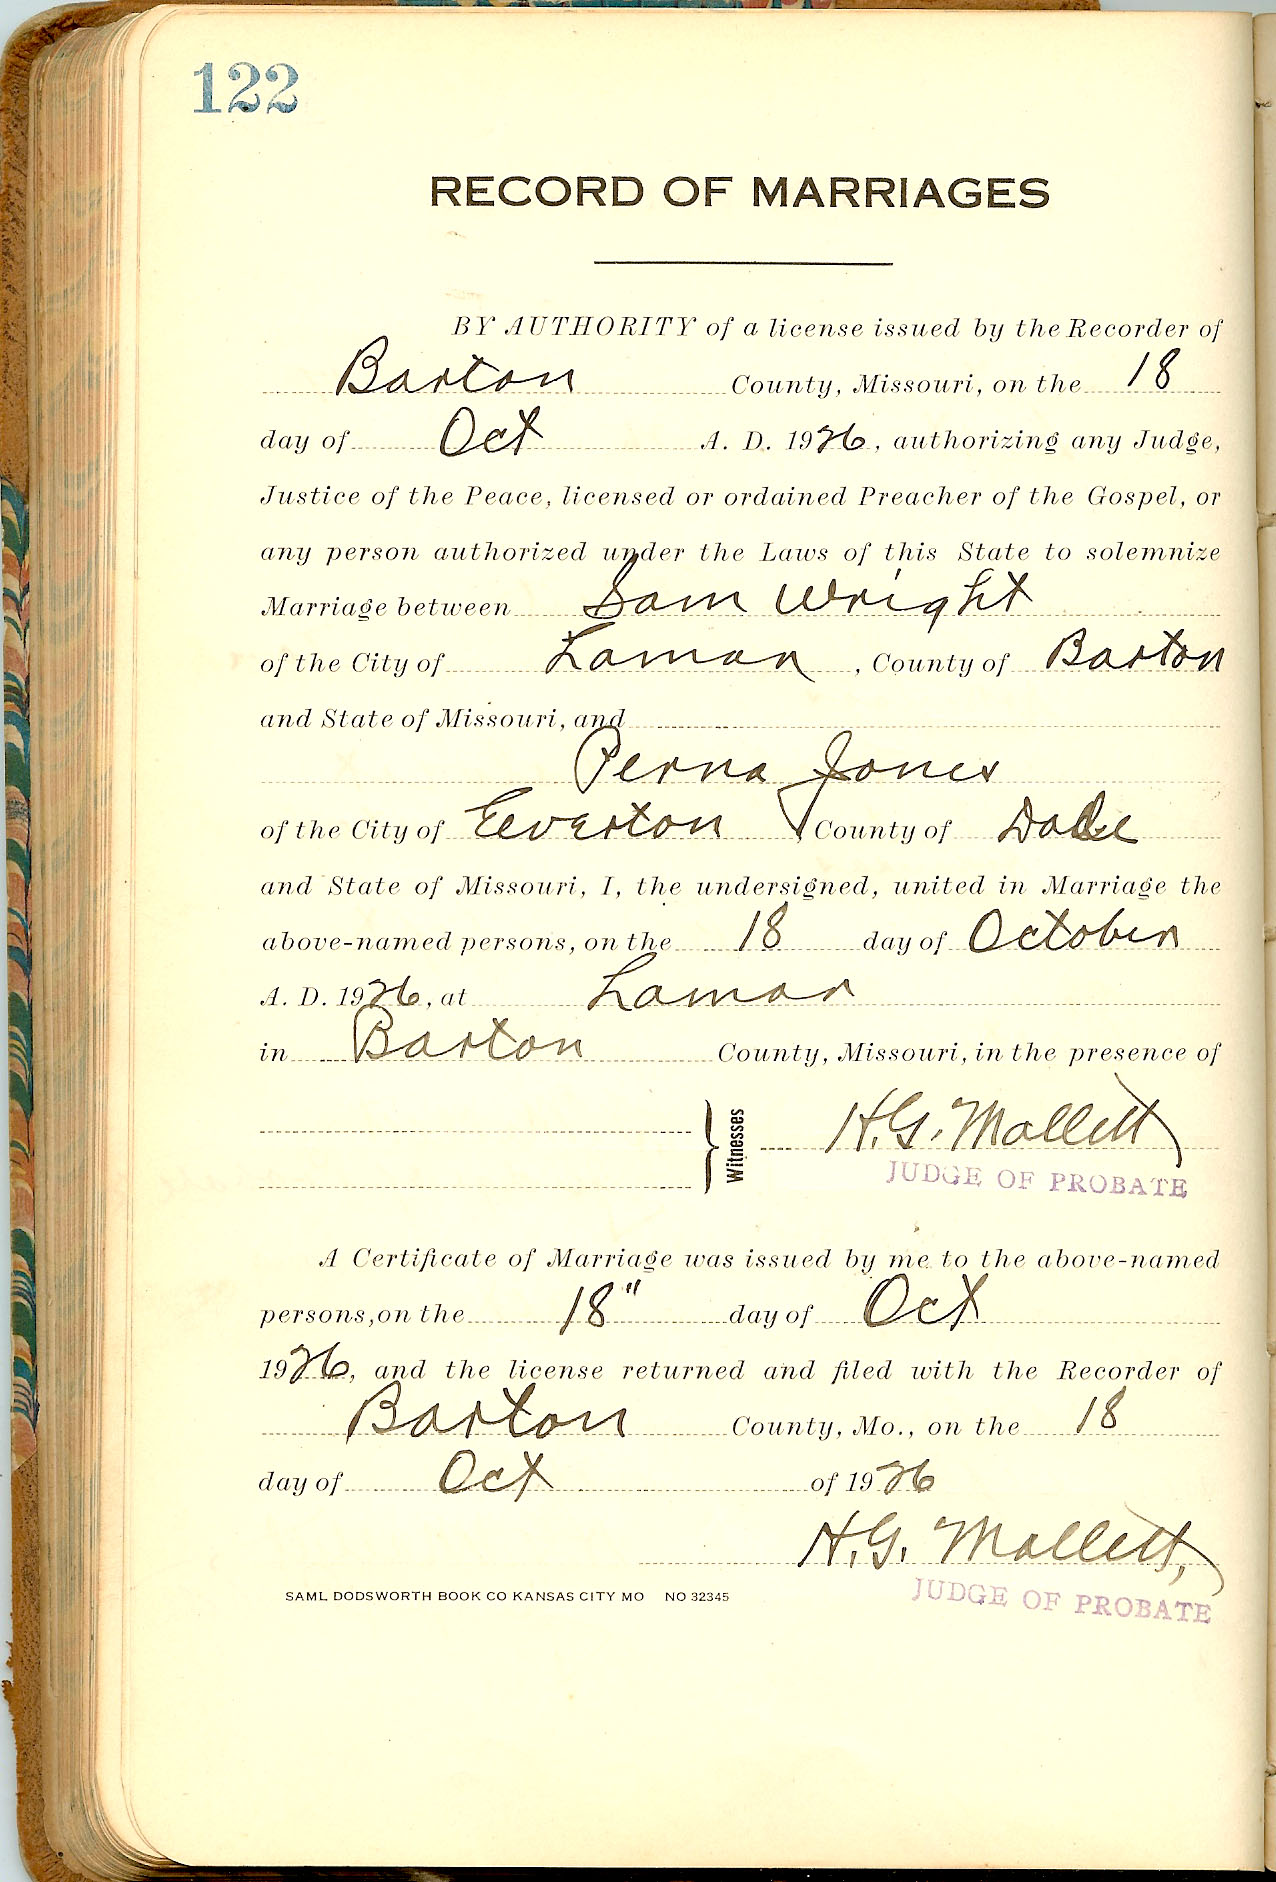 122
RECORD OF MARRIAGES
BY AUTHORITY of a license issued by the Recorder of
Barton County, Missouri, on the 18
day of Oct A. D. 1926, authorizing any Judge,
Justice of the Peace, licensed or ordained Preacher of the Gospel, or
any person authorized under the Laws of this State to solemnize
Marriage between Sam Wright
of the City of Lamar, County of Barton
and State of Missouri, and
Perna Jones
of the City of Everton, County of Dade
and State of Missouri, I, the undersigned, united in Marriage the
above-named persons, on the 18 day of October
A. D. 1926, at Lamar
in Barton County, Missouri, in the presence of
Witnesses H. G. Mallett
JUDGE OF PROBATE
A Certificate of Marriage was issued by me to the above-named
persons, on the 18" day of Oct
1926, and the license returned and filed with the Recorder of
Barton County, Mo., on the 18
day of Oct of 1926
H. G. Mallett,
SAML DODSWORTH BOOK CO KANSAS CITY MO NO 32345
JUDGE OF PROBATE